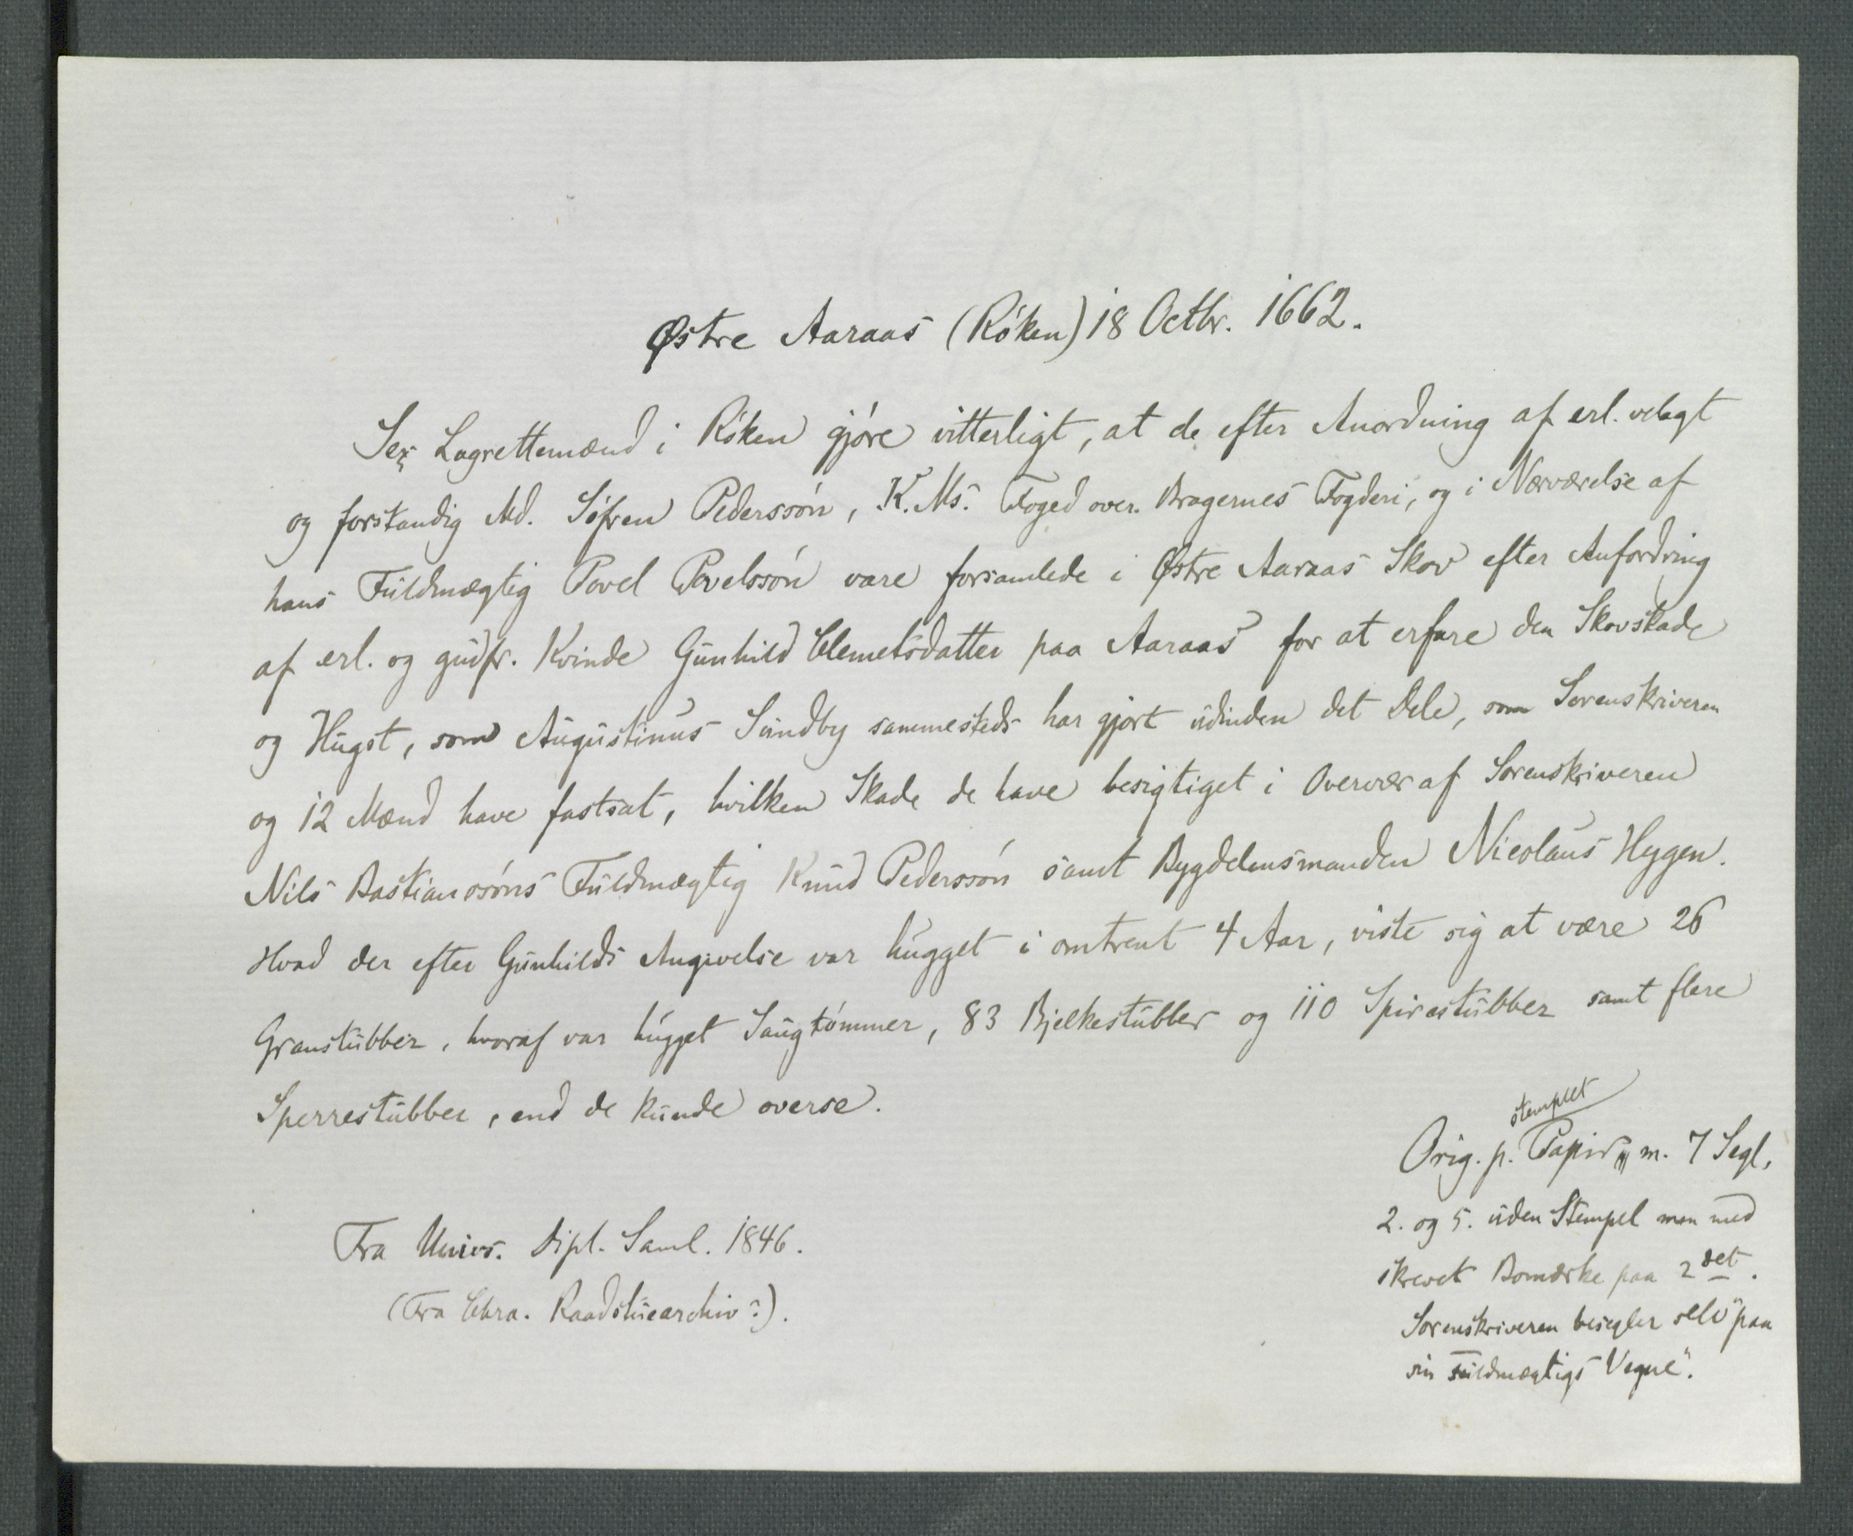 Østre Aaraas (Róken) 18 Octbr. 1662.
Sex Lagrettemænd i Róken gjóre vitterligt, at de efter Anordning af erl. velagt
og forstandig Md. Sófren Pederssón, K. Ms. Foged over Bragernes Fogderi, og i Nærværelse af
hans Fuldmægtig Povel Povelssón vare forsamlede i Østre Aaraas Skov efter Anfordring
af erl. og gudfr. Kvinde Gunhild Clemetsdatter paa Aaraas for at erfare den Skovskade
og Hugst, som Augustinus Sundby sammesteds har gjort udinden det Dele, som Sorenskriveren
og 12 Mænd have fastsat, hvilken Skade de have besigtiget i Overvær af Sorenskriveren
Nils Bastianssóns Fuldmægtig Knud Pederssón samt Bygdelensmanden Nicolaus Hygen.
Hvad der efter Gunhilds Angivelse var hugget i omtrent 4 Aar, viste sig at være 26
Granstubber, hvoraf var hugget Saugtómmer, 83 Bjelkestubber og 110 Spirestubber samt flere
Sperrestubber, end de kunde overse.
stemplet
Orig. p. Papir m. 7 Segl,
2. og 5. uden Stempel men med
skrevet Bomærke paa 2det.
Sorenskriveren besegler selv "paa
sin Fuldmægtigs Vegne".
Fra Univs. Dipl. Saml. 1846.
(Fra Chra. Raadstuearchiv?).